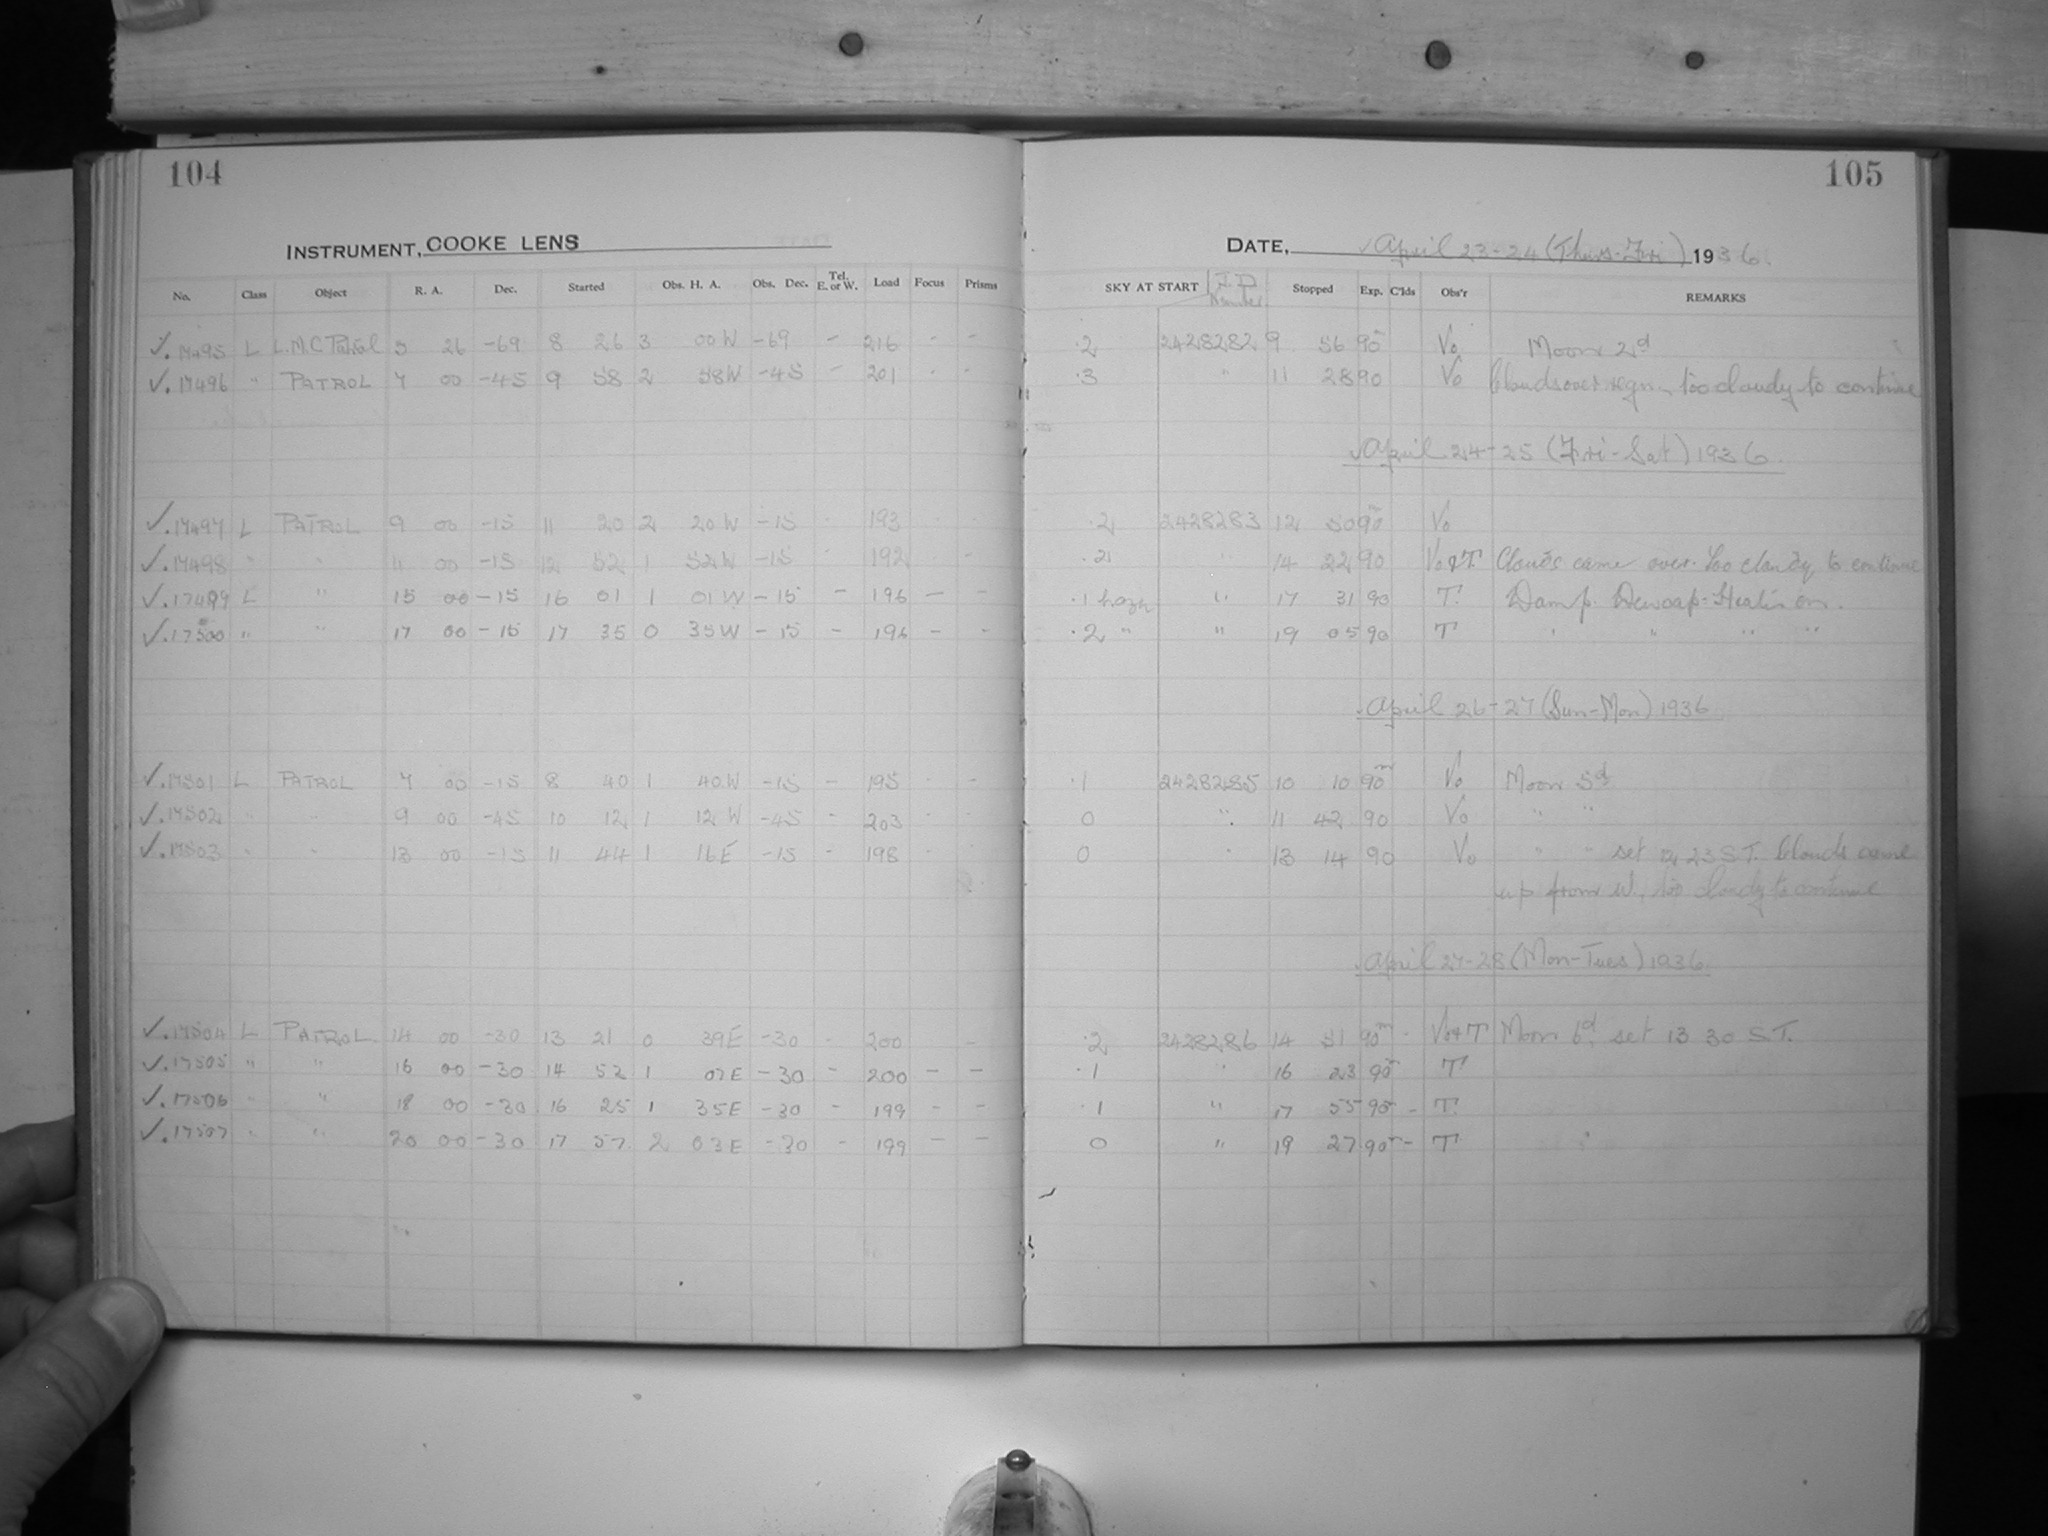 104
INSTRUMENT, COOKE LENS
No. Class Object R. A. Dec. Started Obs. H. A. Obs. Dec. Tel. E. or W. Load Focus Prisms
✓. 17495 L L.M.C Patrol 5 26 -69 8 26 3 00 W -69 - 216 - -
✓. 17496 " PATROL 7 00 -45 9 58 2 58 W -45 - 201 - -
✓. 17497 L PATROL 9 00 -15 11 20 2 20 W -15 - 193
✓. 17498 " " 11 00 -15 12 52 1 52 W -15 - 192 -
✓. 17499 L " 15 00 -15 16 01 1 01 W -15 - 196 - -
✓. 17500 " " 17 00 -15 17 35 0 35 W -15 - 196 - -
✓. 17501 L PATROL 7 00 -15 8 40 1 40 W -15 - 195 - -
✓. 17502 " " 9 00 -45 10 12 1 12 W -45 - 203 - -
✓. 17503 " " 13 00 -15 11 44 1 16 E -15 - 198 - -
✓. 17504 L PATROL 14 00 -30 13 21 0 39 E -30 - 200 -
✓. 17505 " " 16 00 -30 14 52 1 07 E -30 - 200 - -
✓. 17506 " " 18 00 -30 16 25 1 35 E -30 - 199 - -
✓. 17507 " " 20 00 -30 17 57 2 03 E -30 - 199 - -
105
DATE, ✓April 23-24 (Thurs-Fri) 1936.
SKY AT START J.D. Number Stopped Exp. C'lds Obs'r REMARKS
.2 2428282 9 56 90m Vo Moon 2d
.3 " 11 28 90 Vo Clouds over regn., too cloudy to continue
✓April 24-25 (Fri-Sat) 1936.
.2 2428283 12 50 90m Vo
.2 " 14 22 90 Vo&T Clouds came over. Too cloudy to continue
.1 hazy " 17 31 90 T. Damp. Dewcap-Heater on.
.2 " " 19 05 90 T " " " "
✓April 26-27 (Sun-Mon) 1936
.1 2428285 10 10 90m Vo Moon 5d
0 " 11 42 90 Vo " "
0 " 13 14 90 Vo " " set 12 23 S.T. Clouds came
up from W., too cloudy to continue
✓April 27-28 (Mon-Tues) 1936.
.2 2428286 14 51 90m - Vo&T Moon 6d, set 13 30 S.T.
.1 " 16 23 90m T
.1 " 17 55 90m - T.
0 " 19 27 90m - T